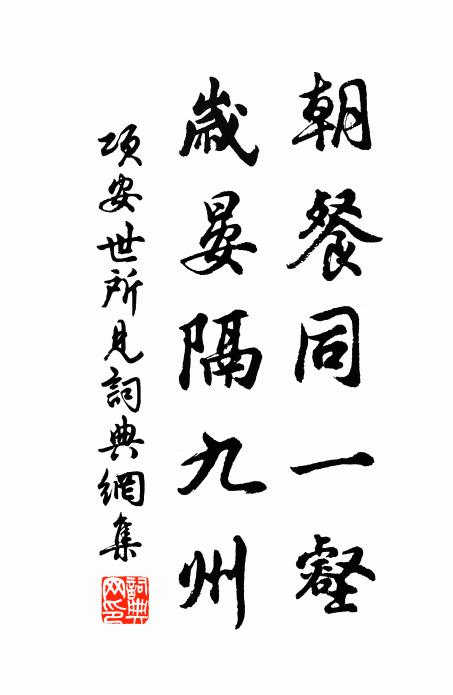 朝餐同一壑
歲晏隔九州
項安世所見詞典網集
詞典網印